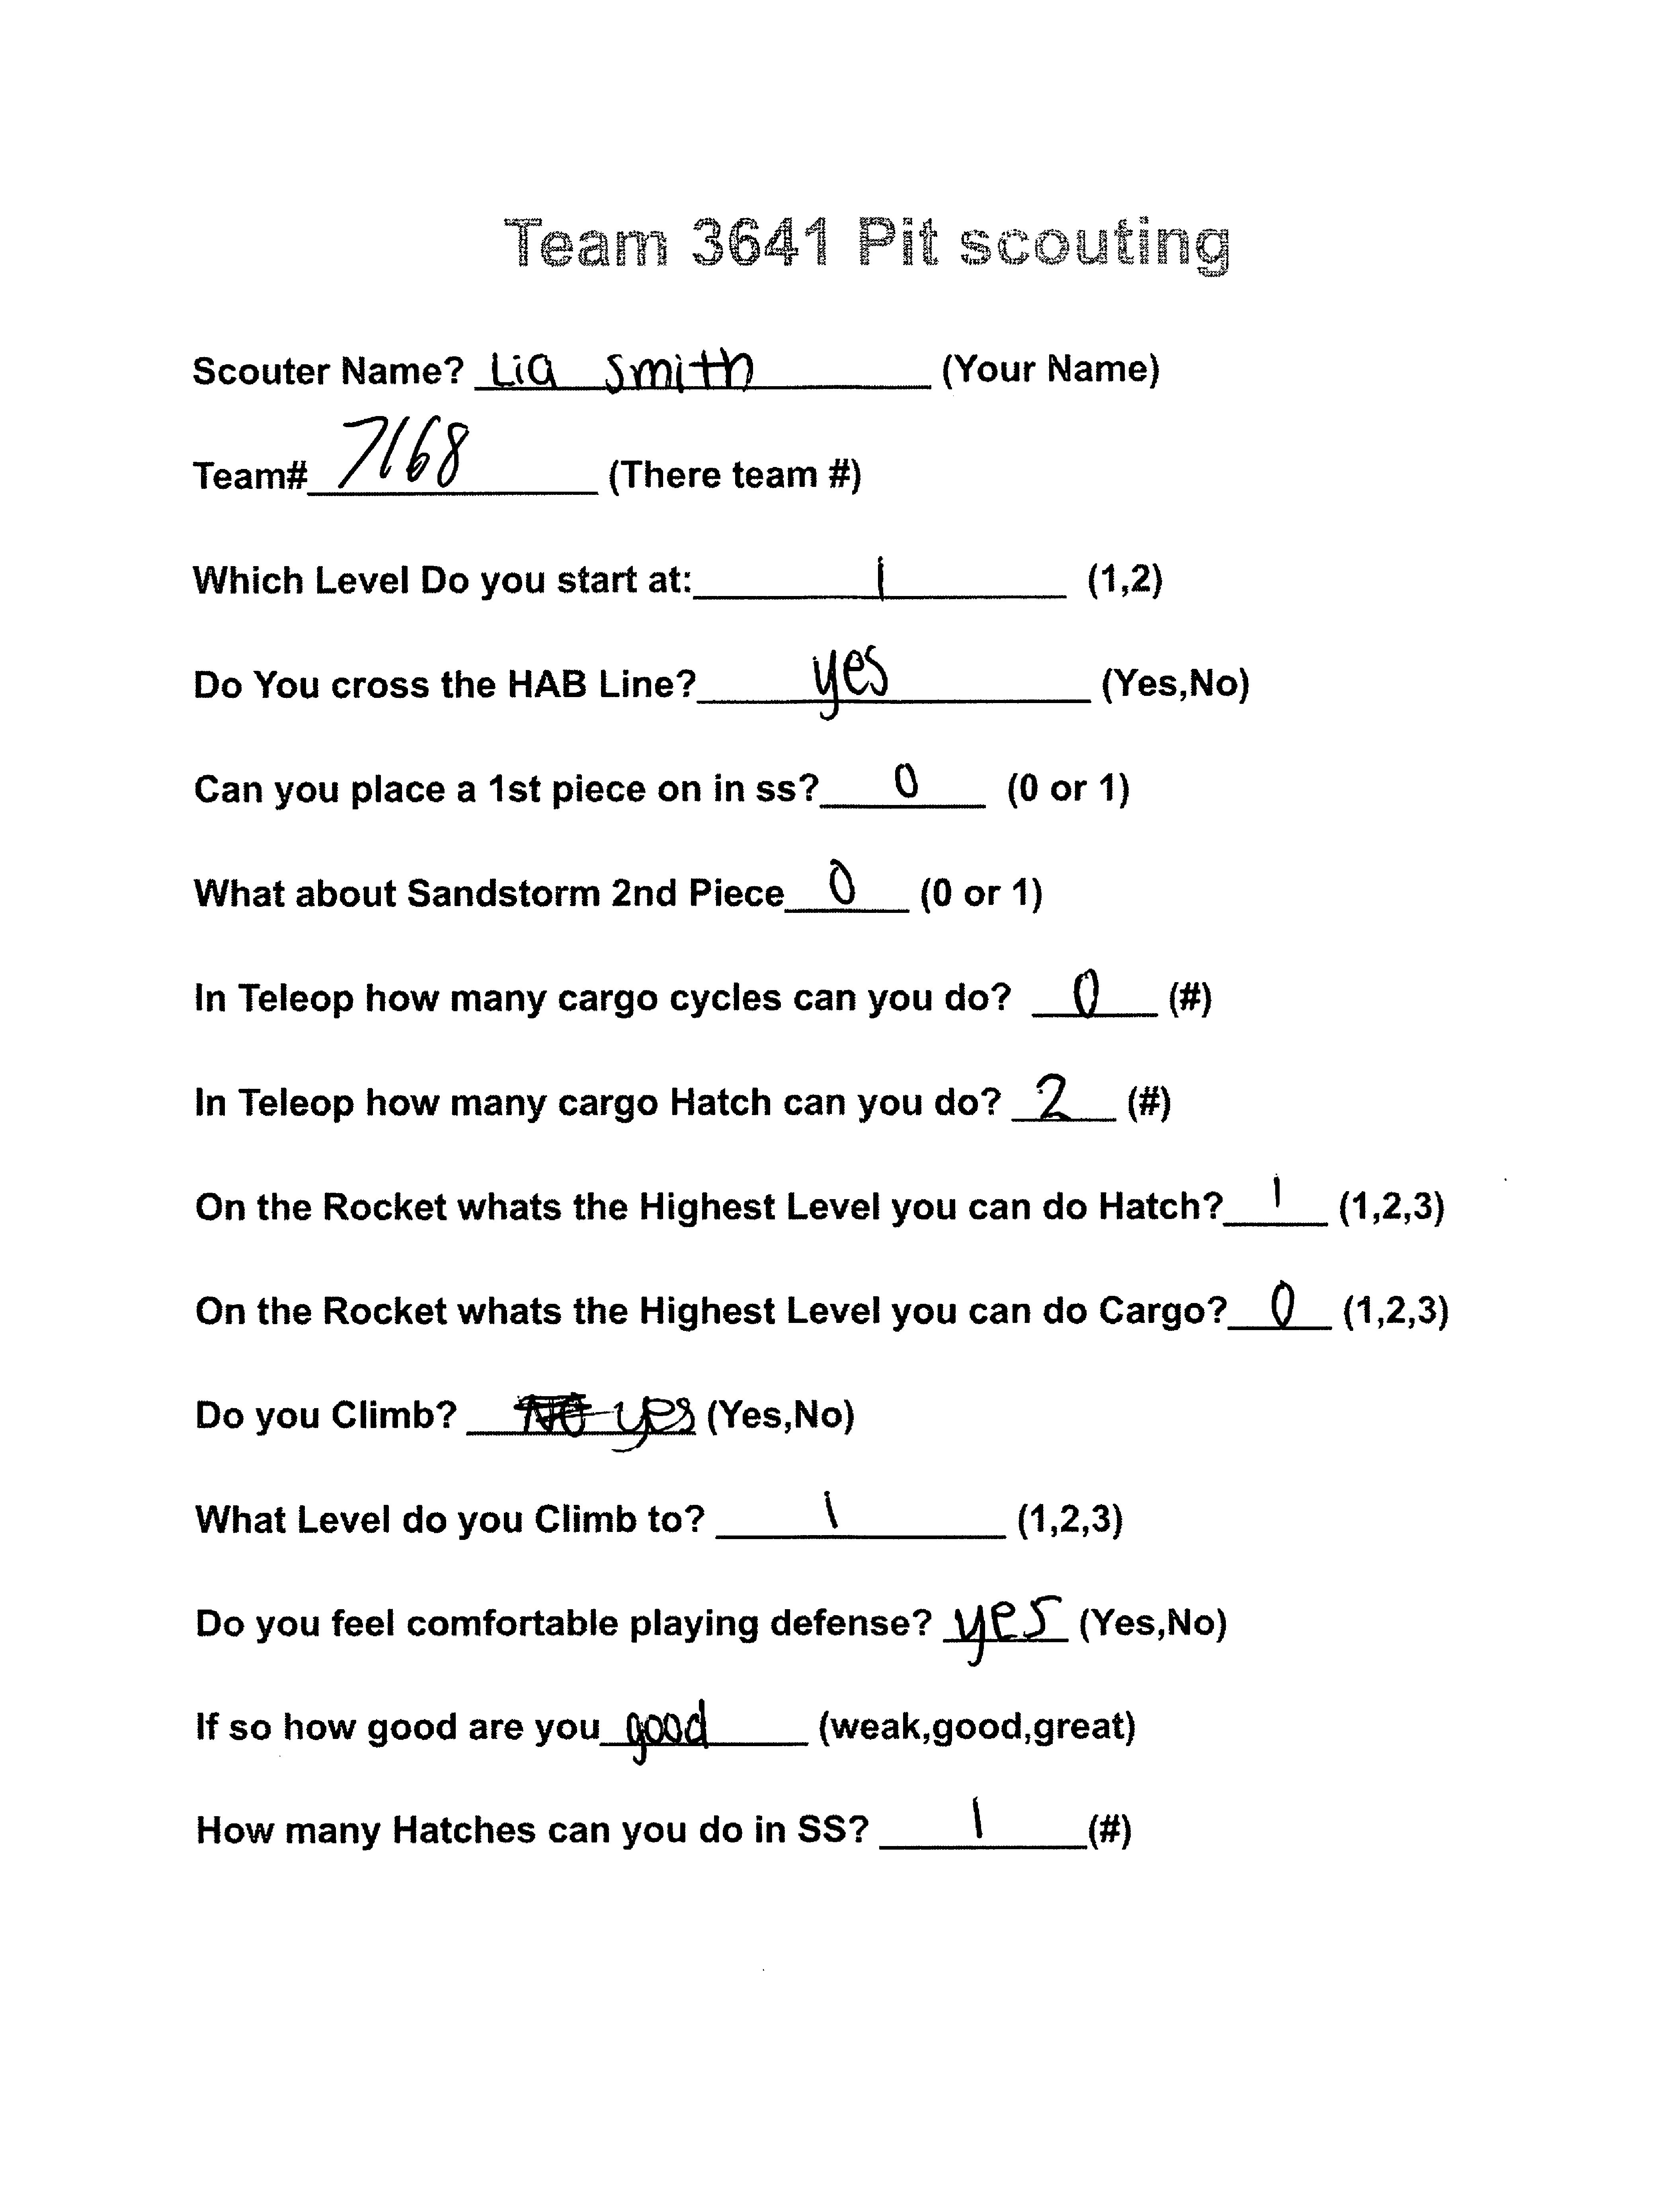 Team 3641 Pit scouting
Scouter Name? Lia Smith (Your Name)
Team# 7168 (There team #)
Which Level Do you start at: 1 (1,2)
Do You cross the HAB Line? yes (Yes,No)
Can you place a 1st piece on in ss? 0 (0 or 1)
What about Sandstorm 2nd Piece 0 (0 or 1)
In Teleop how many cargo cycles can you do? 0 (#)
In Teleop how many cargo Hatch can you do? 2 (#)
On the Rocket whats the Highest Level you can do Hatch? 1 (1,2,3)
On the Rocket whats the Highest Level you can do Cargo? 0 (1,2,3)
Do you Climb? No yes (Yes,No)
What Level do you Climb to? 1 (1,2,3)
Do you feel comfortable playing defense? yes (Yes,No)
If so how good are you good (weak,good,great)
How many Hatches can you do in SS? 1 (#)